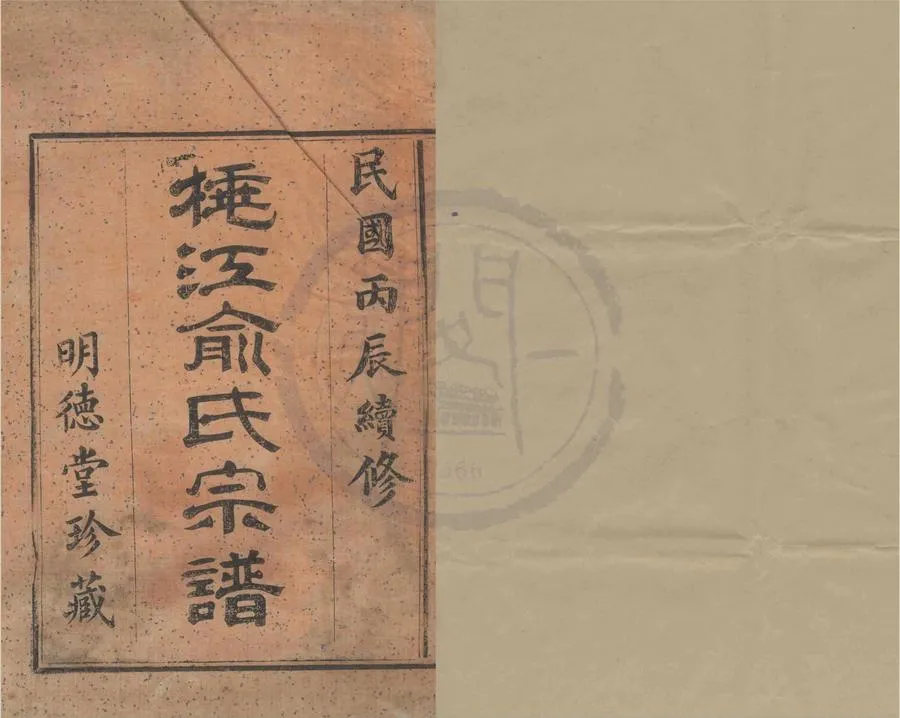 民國丙辰續修
江俞氏宗譜
明德堂珍藏